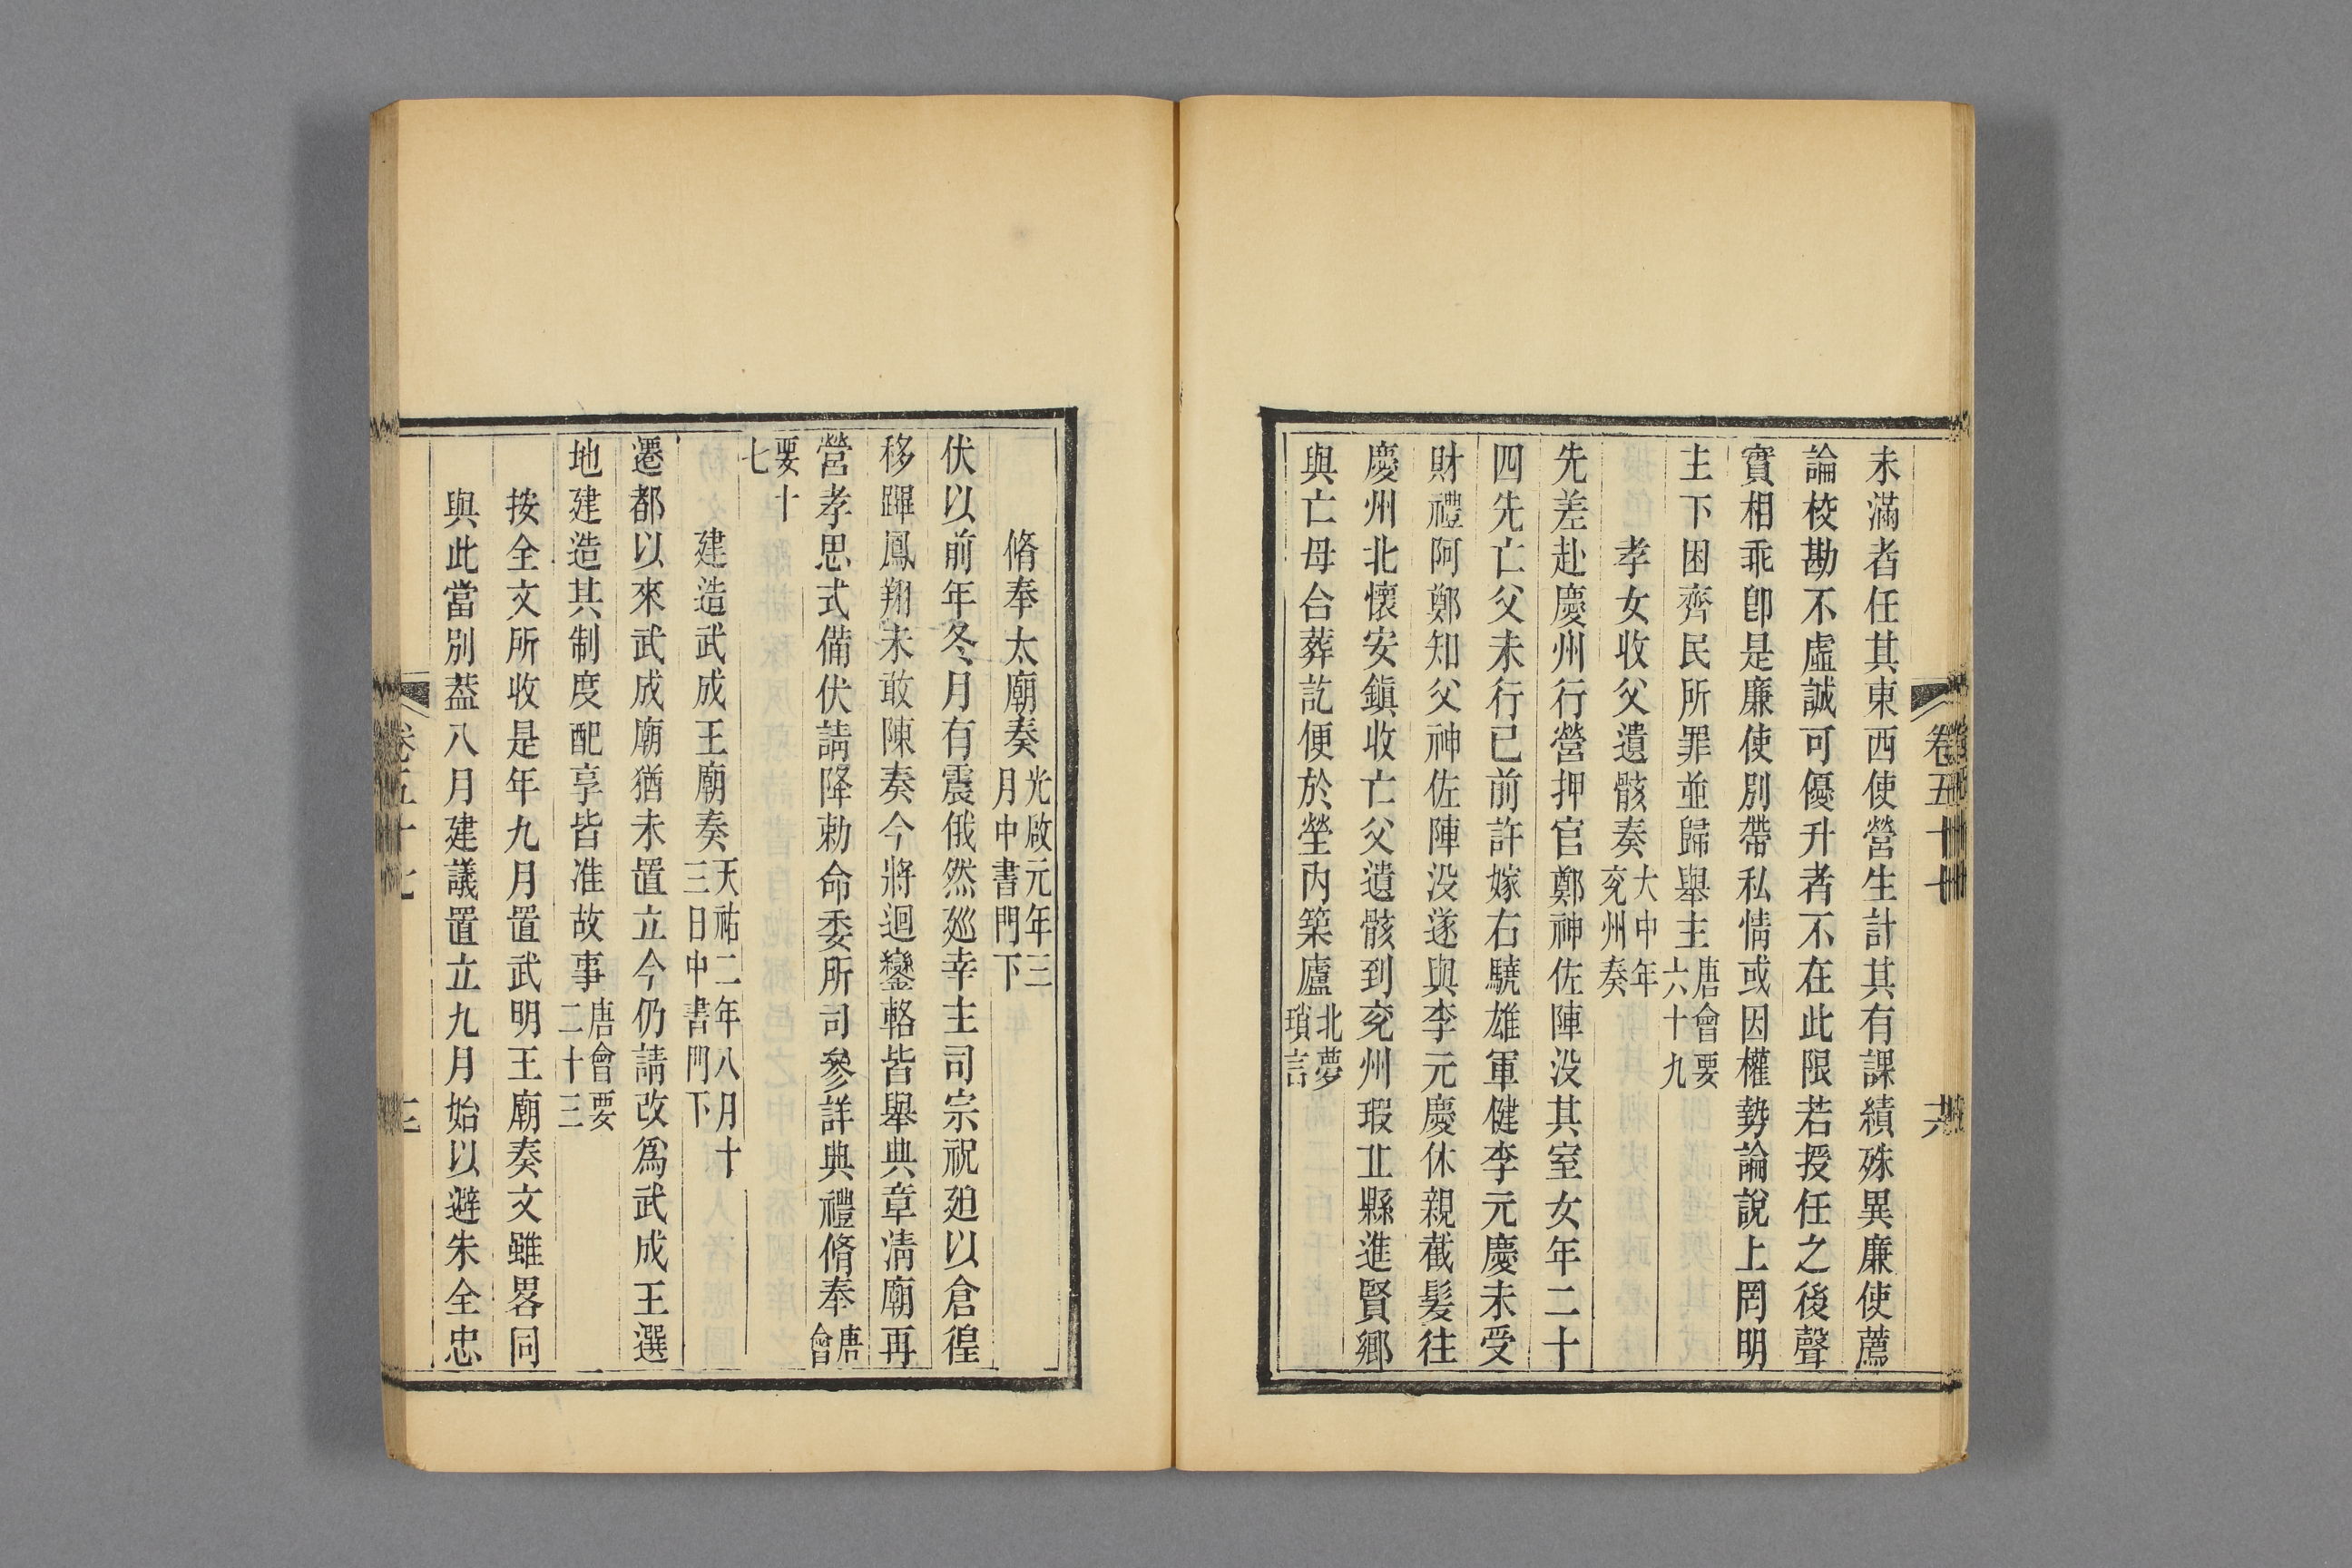 未滿者任其東西使營生計其有課績殊異廉使薦
論校勘不虛誠可優升者不在此限若授任之後聲
實相乖卽是廉使別帶私情或因權勢論說上罔明
主下困齊民所罪並歸舉主唐會要六十九
孝女收父遺骸奏大中年兖州奏
先差赴慶州行營押官鄭神佐陣没其室女年二十
四先亡父未行已前許嫁右驍雄軍健李元慶未受
財禮阿鄭知父神佐陣没遂與李元慶休親截髮往
慶州北懷安鎭收亡父遺骸到兖州瑕㐀縣進賢鄉
與亡母合葬訖便於塋內築廬北夢瑣言
卷五十七
脩奉太廟奏光啟元年三月中書門下
伏以前年冬月有震俄然廵幸主司宗祝廹以倉徨
移蹕鳳翔未敢陳奏今將迴鑾輅皆舉典章淸廟再
營孝思式備伏請降勅命委所司參詳典禮脩奉唐會
要十七
建造武成王廟奏天祐二年八月十三日中書門下
遷都以來武成廟猶未置立今仍請改爲武成王選
地建造其制度配享皆准故事唐會要二十三
按全文所收是年九月置武明王廟奏文雖畧同
與此當別葢八月建議置立九月始以避朱全忠
卷五十七